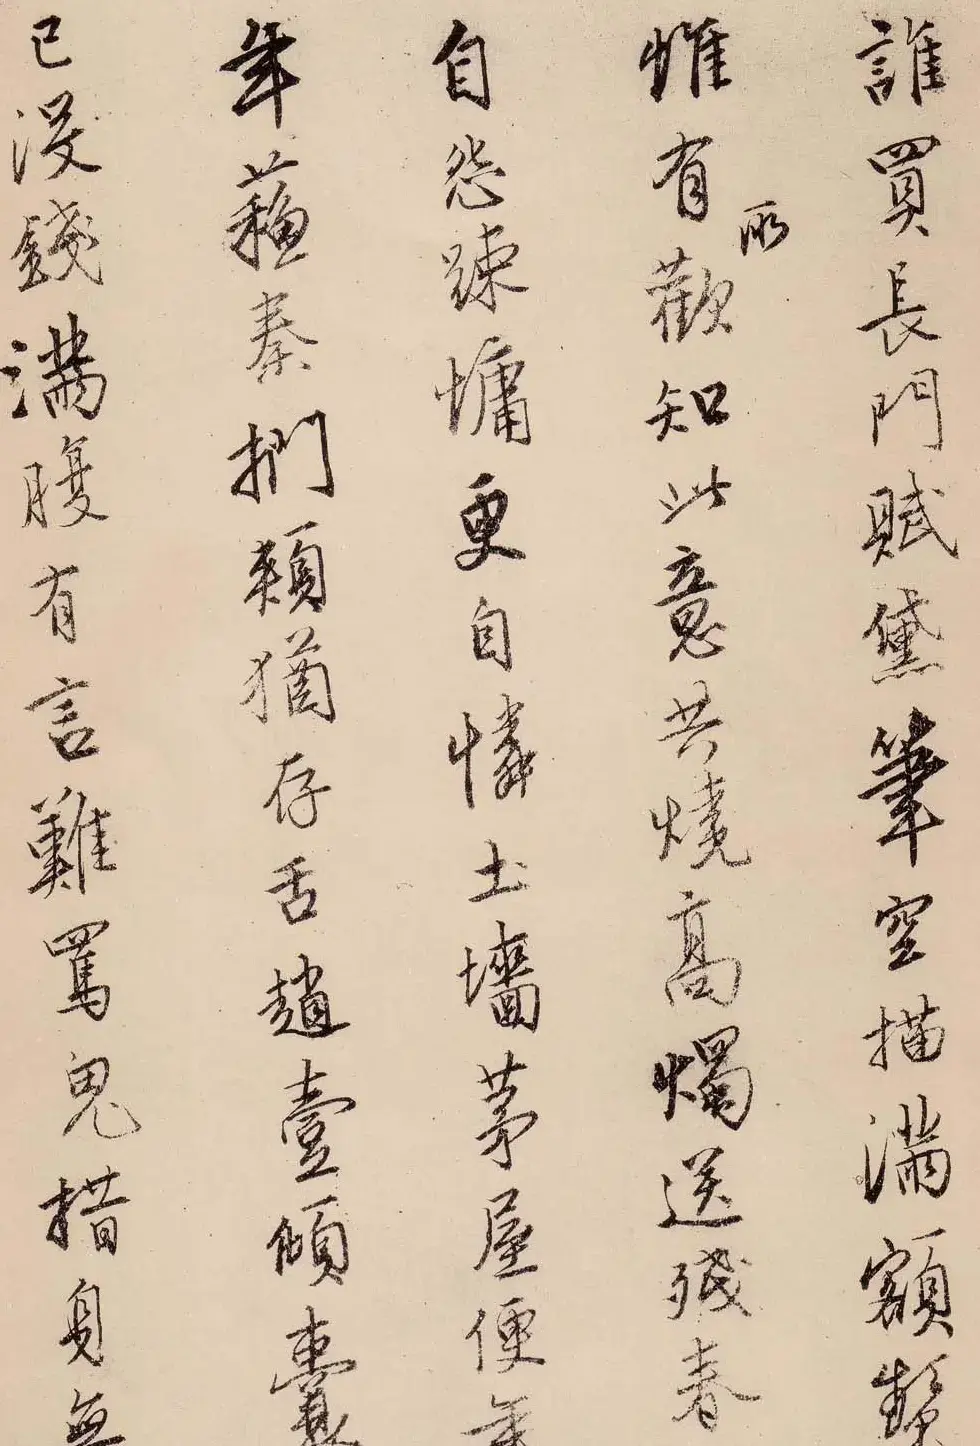 誰買長門賦黛筆空描滿額顰
惟有所歡知此意共燒高燭送殘春
自怨疎慵更自憐土墻茅屋便年
年蘓秦捫頰猶存舌趙壹傾囊
已沒錢滿腹有言難罵鬼措身無